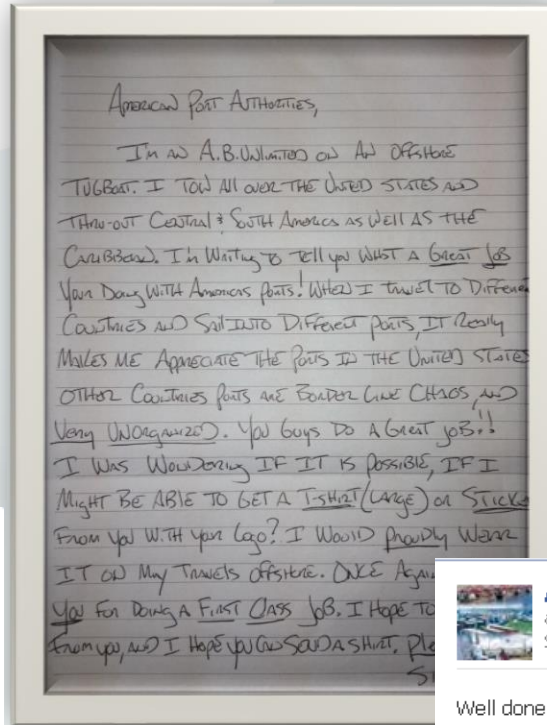 American Port Authorities,
I'm an A.B. Unlimited on an offshore
tugboat. I tow all over the United States and
thru-out Central & South America as well as the
Caribbean. I'm writing to tell you what a great job
your doing with Americas ports! When I travel to Different
Countries and sail into Different ports, it really
makes me appreciate the ports in the United States
other countries ports are border line chaos, and
very unorganized. You guys do a great job!!
I was wondering if it is possible, if I
might be able to get a T-shirt (large) or
from you with your logo? I would proudly wear
it on my travels offshore. Once
you for doing a first class job. I hope to
from you, and I hope you can send a shirt.
Well done